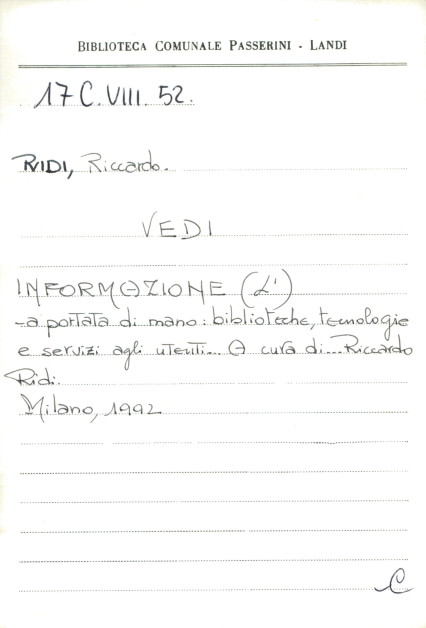 BIBLIOTECA COMUNALE PASSERINI - LANDI
17 C. VIII. 52.
RIDI, Riccardo.
VEDI
INFORMAZIONE (L')
-a portata di mano: biblioteche, tecnologie
e servizi agli utenti... A cura di... Riccardo
Ridi.
Milano, 1992
C